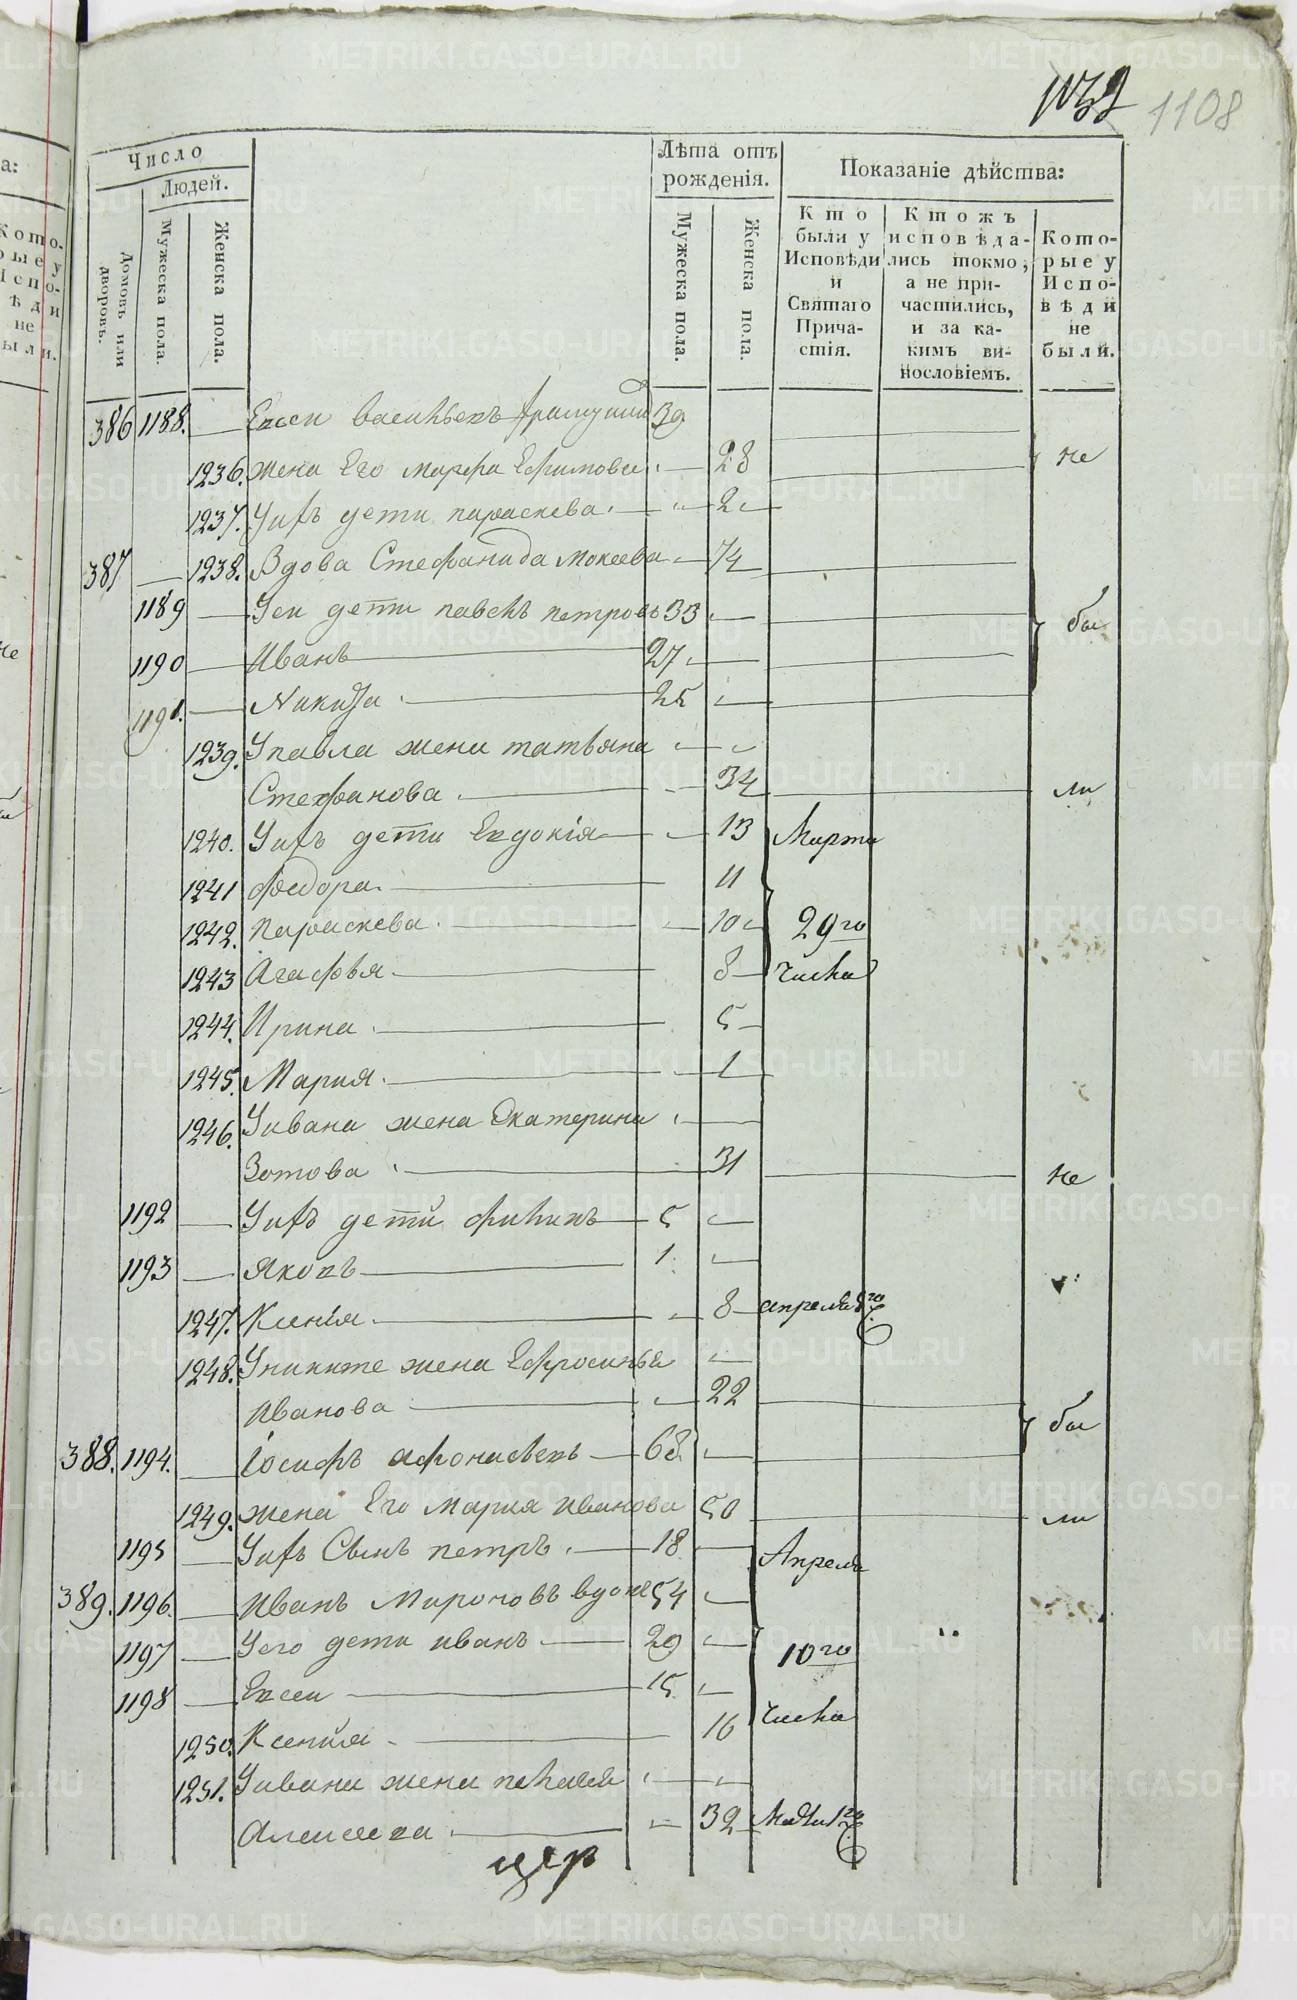 1108
Число
Людей.
Домовъ или дворовъ.
Мужеска пола.
Женска пола.
Лѣта отъ рожденія.
Мужеска пола.
Женска пола.
Показаніе дѣйства:
Кто были у Исповѣди и Святаго Причастія.
Ктожъ исповѣдались токмо, а не причастились, и за какимъ винословіемъ.
Которые у Исповѣди не были.
386 1188. Васильевъ 39
1236. жена Его марфа Ефимова 28 не
1237. Уихъ дети параскева 2
387 1238. Вдова Стефанида мокеева 74
1189 Уеи дети павелъ петровъ 33 бы
1190 Иванъ 27
1191. Никита 25
1239. Упавла жена татьяна
Стефанова 34 ли
1240. Уихъ дети Евдокія 13 Марта
1241 федора 11
1242. параскева 10 29го
1243 Агафья 8 числа
1244. Ирина 5
1245. Мария 1
1246. Уивана жена Екатерина
Зотова 31 не
1192 Уихъ дети филипъ 5
1193 Яковъ 1
1247. Ксенія 8 апреля
1248. Уникиты жена Ефросинья
Иванова 22
388. 1194. Іосифъ афонасьевъ 68 бы
1249. жена Его Мария иванова 50 ли
1195 Уихъ Сынъ петръ 18 Апреля
389. 1196. Иванъ Мироновъ вдовъ 54
1197 Уего дети иванъ 29 10го
1198 Евсеи 15
1250. Ксения 16 числа
1251. Уивана жена пелагея
Алексеева 32
цер